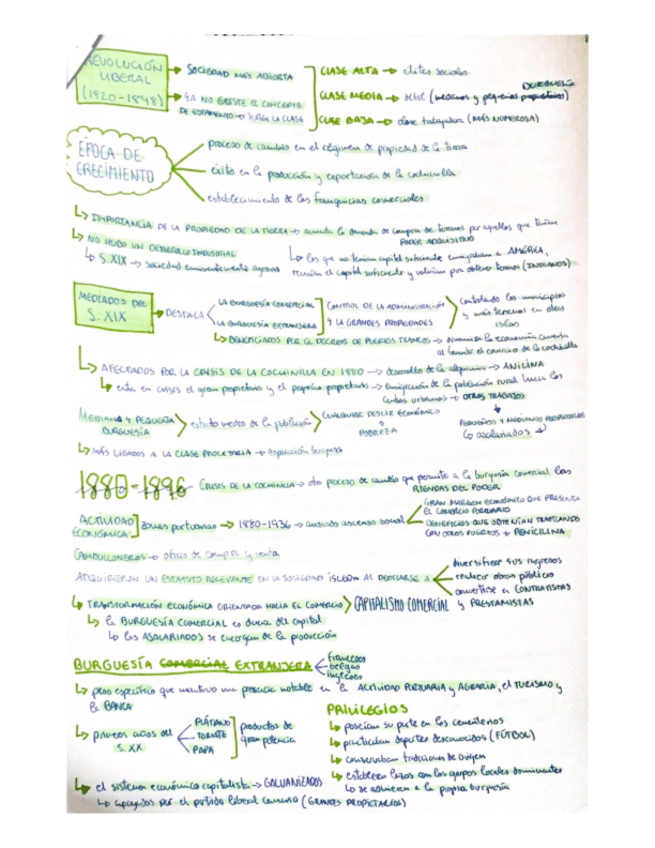 REVOLUCIÓN LIBERAL (1820-1848)
→ SOCIEDAD MÁS ABIERTA
→ YA NO EXISTE EL CONCEPTO DE ESTAMENTO → SURGE LA CLASE
CLASE ALTA → élites sociales
CLASE MEDIA → débil (medianos y pequeños propietarios) BURGUESÍA
CLASE BAJA → clase trabajadora (MÁS NUMEROSA)
ÉPOCA DE CRECIMIENTO
proceso de cambio en el régimen de propiedad de la tierra
éxito en la producción y exportación de la cochinilla
establecimiento de las franquicias comerciales
↳ IMPORTANCIA DE LA PROPIEDAD DE LA TIERRA → aumenta la demanda de compra de terrenos por aquellos que tenían PODER ADQUISITIVO
↳ NO HUBO UN DESARROLLO INDUSTRIAL
↳ S. XIX → sociedad eminentemente agraria
↳ los que no tenían capital suficiente emigraban a AMÉRICA, reunían el capital suficiente y volvían para obtener terrenos (INDIANOS)
MEDIADOS DEL S. XIX
→ DESTACA
LA BURGUESÍA COMERCIAL
LA BURGUESÍA EXTRANJERA
CONTROL DE LA ADMINISTRACIÓN Y LA GRANDES PROPIEDADES
Controlando los municipios y más terrenos en otras islas
↳ BENEFICIADOS POR EL DECRETO DE PUERTOS FRANCOS → dinamiza la economía canaria al fomentar el comercio de la cochinilla
↳ AFECTADOS POR LA CRISIS DE LA COCHINILLA EN 1880 → desarrollo de la alquimia → ANILINA
↳ entra en crisis el gran propietario y el pequeño propietario → emigración de la población rural hacia los centros urbanos → OTROS TRABAJOS
PEQUEÑOS Y MEDIANOS PROPIETARIOS (→ asalariados)
MEDIANA Y PEQUEÑA BURGUESÍA
estrato medio de la población
CUALQUIER DESLIZ ECONÓMICO
↓
POBREZA
↳ MÁS LIGADOS A LA CLASE PROLETARIA → aspiración burguesa
1880-1896
CRISIS DE LA COCHINILLA → otro proceso de cambio que permite a la burguesía comercial las RIENDAS DEL PODER
ACTIVIDAD ECONÓMICA
zonas portuarias → 1880-1936 → ascenso social
GRAN MARGEN ECONÓMICO QUE PRESENTA EL COMERCIO PORTUARIO
BENEFICIOS QUE OBTENÍAN TRAFICANDO CON OTROS PUERTOS → PENICILINA
CAMBULLONEROS → oficio de compra y venta
ADQUIRIERON UN ESTATUTO RELEVANTE EN LA SOCIEDAD ISLEÑA AL DEDICARSE A
diversificar sus ingresos
realizar obras públicas
convertirse en CONTRATISTAS Y PRESTAMISTAS
↳ TRANSFORMACIÓN ECONÓMICA ORIENTADA HACIA EL COMERCIO
CAPITALISMO COMERCIAL
↳ la BURGUESÍA COMERCIAL es dueña del capital
↳ los ASALARIADOS se encargan de la producción
BURGUESÍA COMERCIAL EXTRANJERA
franceses
belgas
ingleses
↳ peso específico que mantuvo una presencia notable en la ACTIVIDAD PORTUARIA Y AGRARIA, el TURISMO y la BANCA
↳ primeros años del S. XX
PLÁTANO
TOMATE
PAPA
productos de gran potencia
PRIVILEGIOS
↳ poseían su parte en los cementerios
↳ practicaban deportes desconocidos (FÚTBOL)
↳ conservaban tradiciones de origen
↳ establecen lazos con los grupos locales dominantes
↳ se adhieren a la propia burguesía
↳ el sistema económico capitalista → GALVANIZADOS
↳ apoyados por el partido liberal canario (GRANDES PROPIETARIOS)